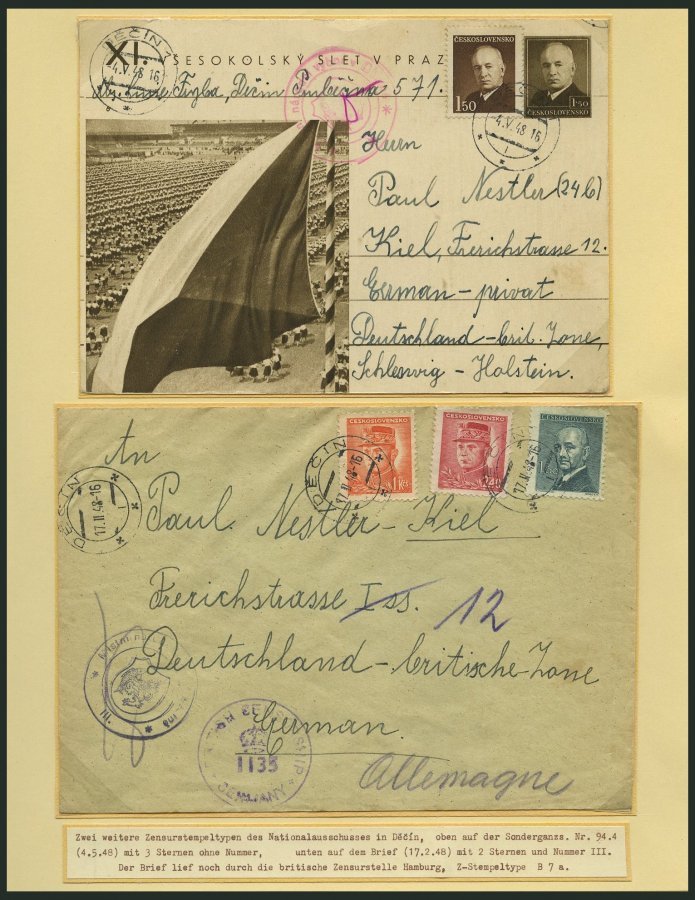 XI. VŠESOKOLSKÝ SLET V PRAZE
DĚČÍN 1
-4.V.48 16
Děčín 571.
ČESKOSLOVENSKO
1·50
1·50
ČESKOSLOVENSKO
-4.V.48-16
Herrn
Paul Nestler (24b)
Kiel, Frerichstrasse 12.
German - privat
Deutschland - brit. Zone,
Schleswig - Holstein.
An
DĚČÍN 1
17.II.48-16
DĚČÍN
17.II.48-16
1 Kčs
ČESKOSLOVENSKO
2·40
ČESKOSLOVENSKO
17.II.48-16
Paul Nestler - Kiel
Frerichstrasse Iss. 12
Deutschland - britische Zone
German.
Allemagne
III.
CENSORSHIP
1135
GERMANY
Zwei weitere Zensurstempeltypen des Nationalausschusses in Děčín, oben auf der Sonderganzs. Nr. 94.4
(4.5.48) mit 3 Sternen ohne Nummer, unten auf dem Brief (17.2.48) mit 2 Sternen und Nummer III.
Der Brief lief noch durch die britische Zensurstelle Hamburg, Z-Stempeltype B 7 a.